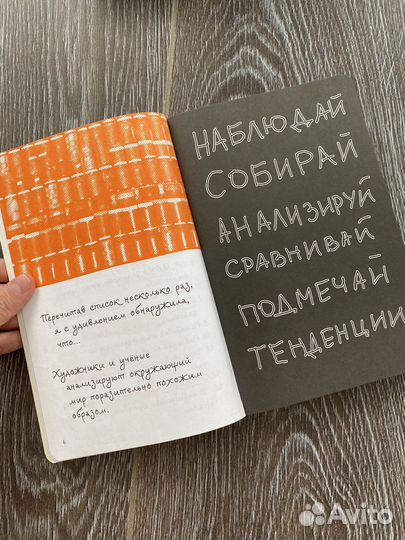 Перечитав список несколько раз,
я с удивлением обнаружила,
что...
Художники и учёные
анализируют окружающий
мир поразительно похожим
образом.
6
НАБЛЮДАЙ
СОБИРАЙ
АНАЛИЗИРУЙ
СРАВНИВАЙ
ПОДМЕЧАЙ
ТЕНДЕНЦИИ
Avito